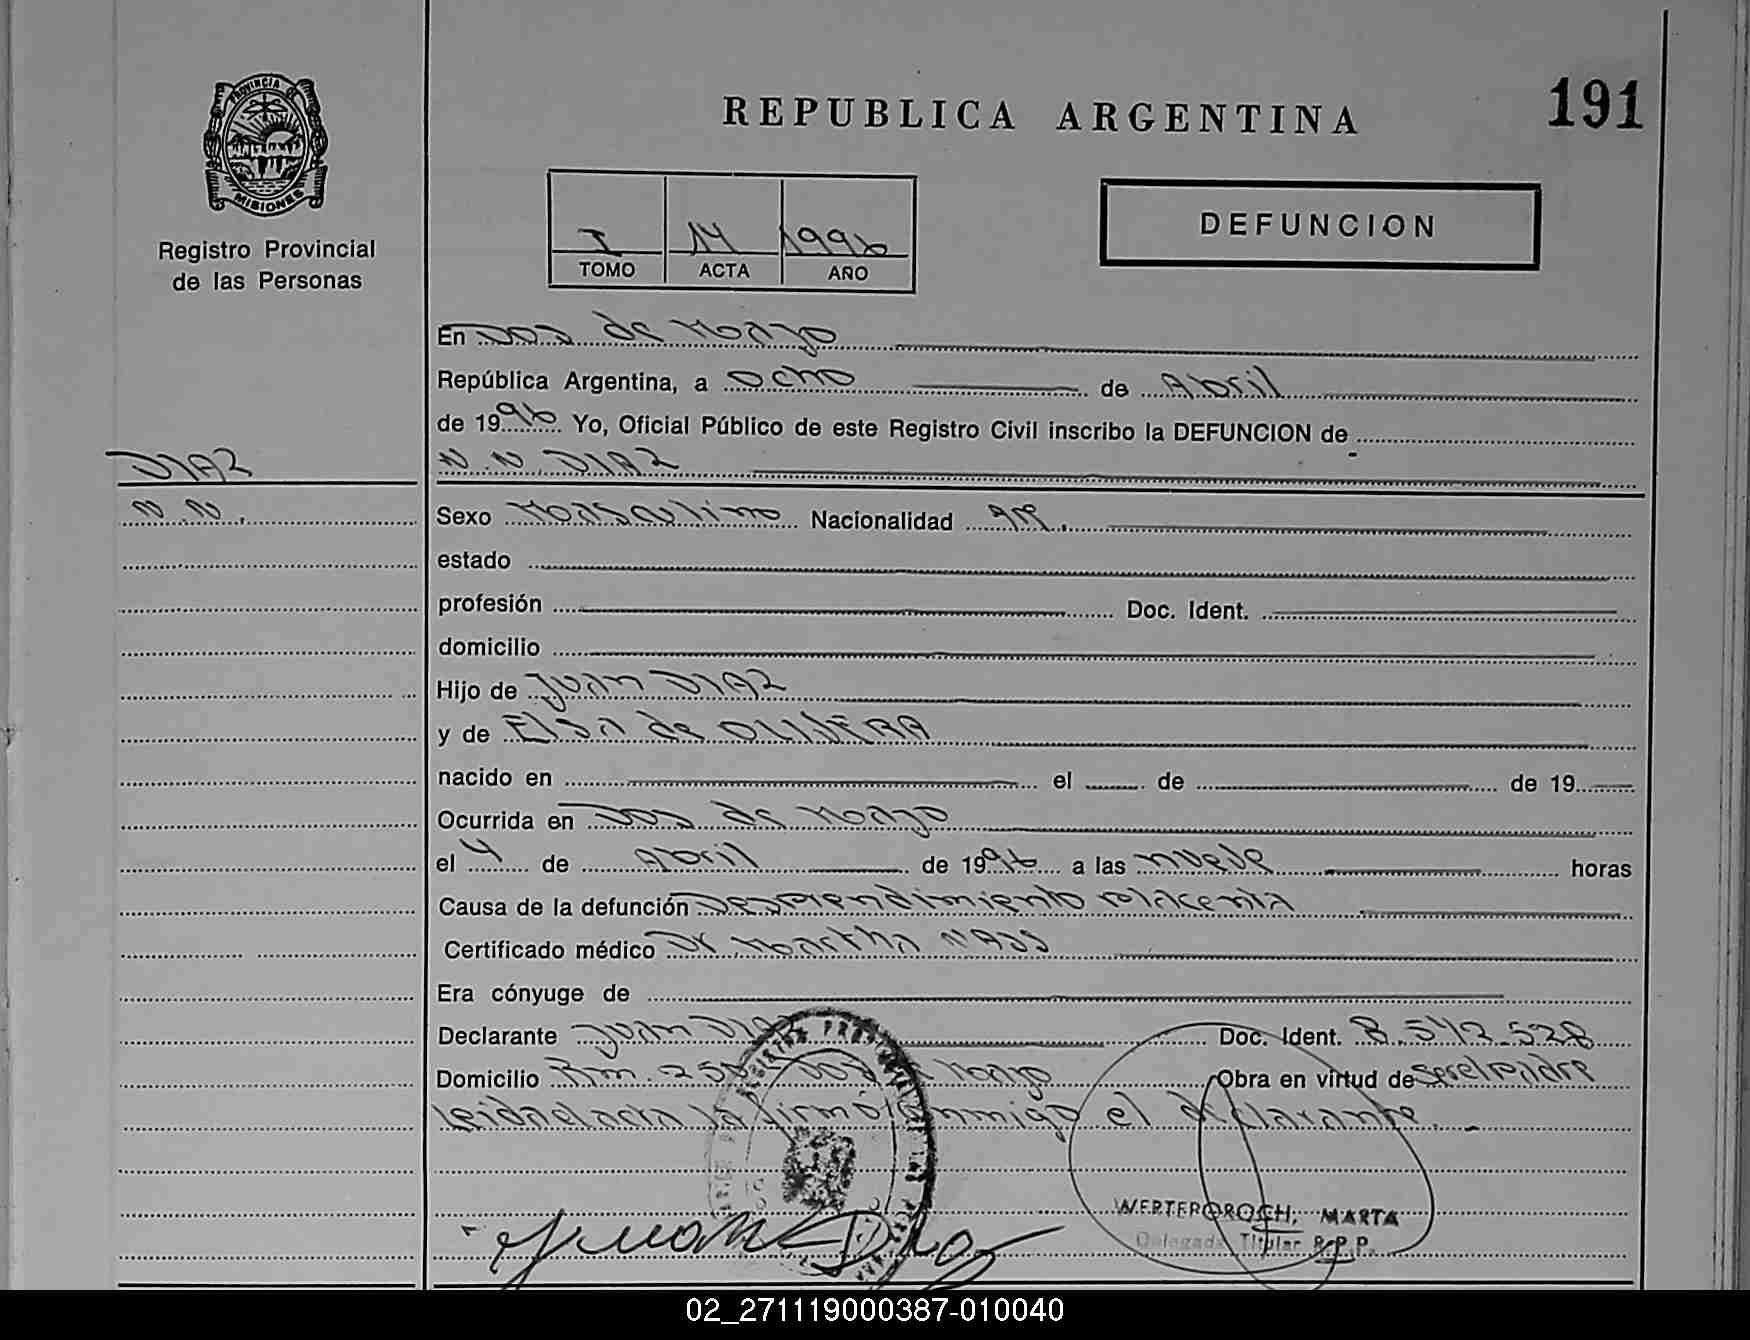 191
REPUBLICA ARGENTINA
PROVINCIA DE
MISIONES
Registro Provincial
de las Personas
I 14 1996
TOMO ACTA AÑO
DEFUNCION
En Dos de Mayo
República Argentina, a Ocho de Abril
de 1996 Yo, Oficial Público de este Registro Civil inscribo la DEFUNCION de
DIAZ
N.N. DIAZ
N.N.
Sexo Masculino Nacionalidad Arg.
estado
profesión Doc. Ident.
domicilio
Hijo de Juan DIAZ
y de Elsa de OLIVERA
nacido en el de de 19
Ocurrida en Dos de Mayo
el 4 de Abril de 1996 a las nueve horas
Causa de la defunción Desprendimiento placenta
Certificado médico Dr Martha
Era cónyuge de
Declarante Juan DIAZ Doc. Ident. 8.542.528
Domicilio Km. 251 Dos de Mayo Obra en virtud de ser el padre
leida el acta la firmó conmigo el declarante.
WERTEROROCH, MARTA
Delegada Titular R.P.P.
Juan Diaz
02_271119000387-010040